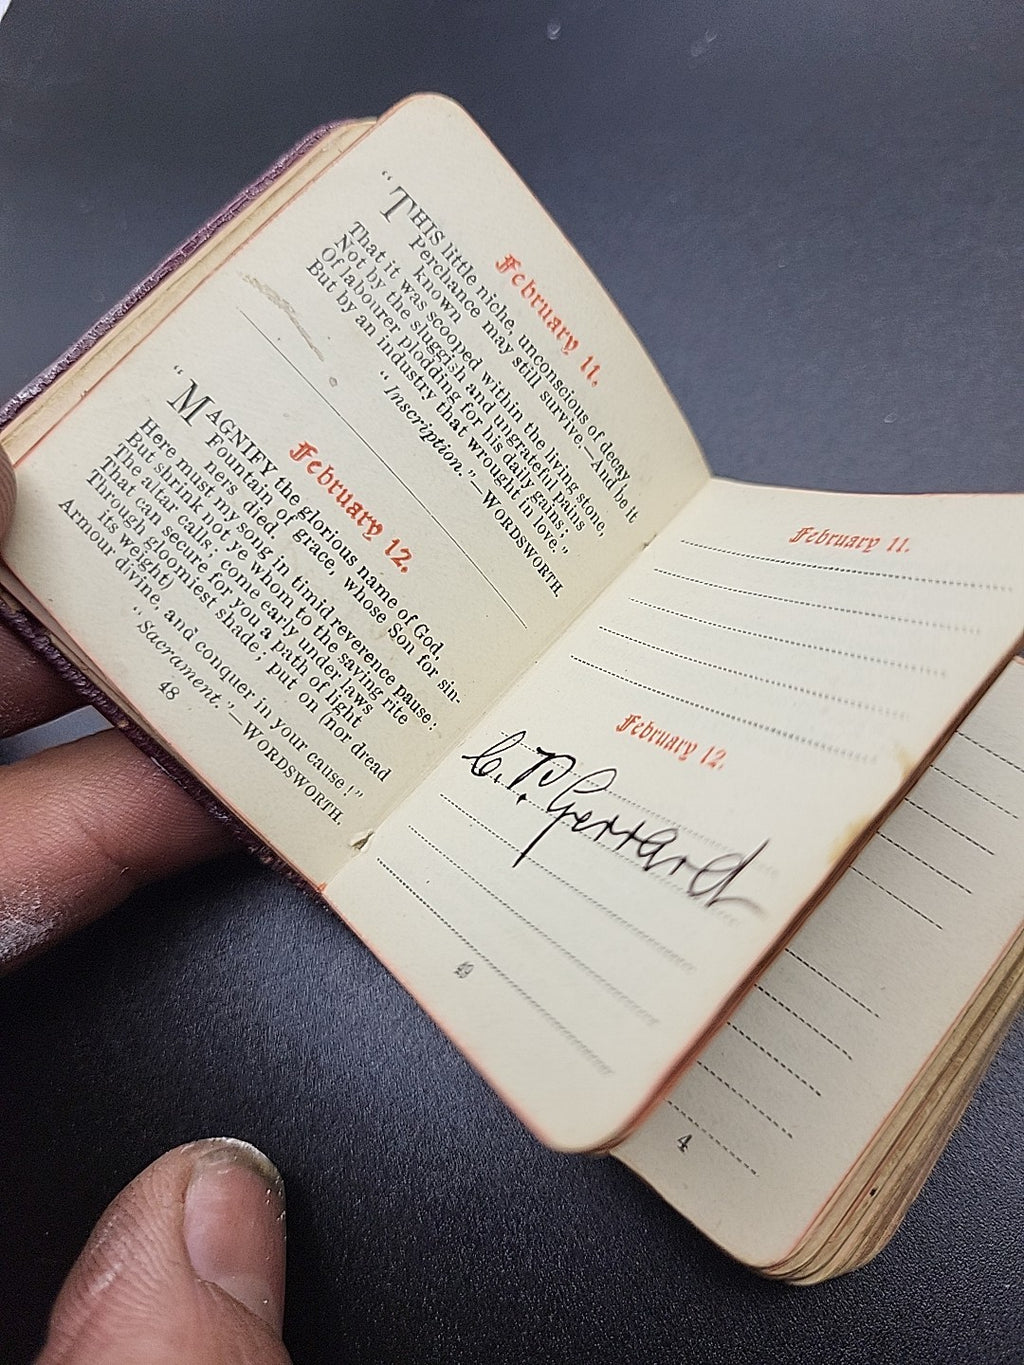 February 11.
"THIS little niche, unconscious of decay,
Perchance may still survive.—And be it
known
That it was scooped within the living stone,
Not by the sluggish and ungrateful pains
Of labourer plodding for his daily gains;
But by an industry that wrought in love."
"Inscription."—WORDSWORTH.
February 12.
"MAGNIFY the glorious name of God,
Fountain of grace, whose Son for sin-
ners died,
Here must my song in timid reverence pause:
But shrink not ye whom to the saving rite
The altar calls; come early under laws
That can secure for you a path of light
Through gloomiest shade; put on (nor dread
its weight)
Armour divine, and conquer in your cause!"
"Sacrament."—WORDSWORTH.
48
February 11.
February 12.
C. P. Gerrard
49
4